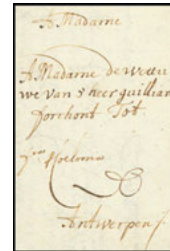 A Madame
A Madame de Weeu
we van s heer guilliam
forchont Tot
Antwerpen